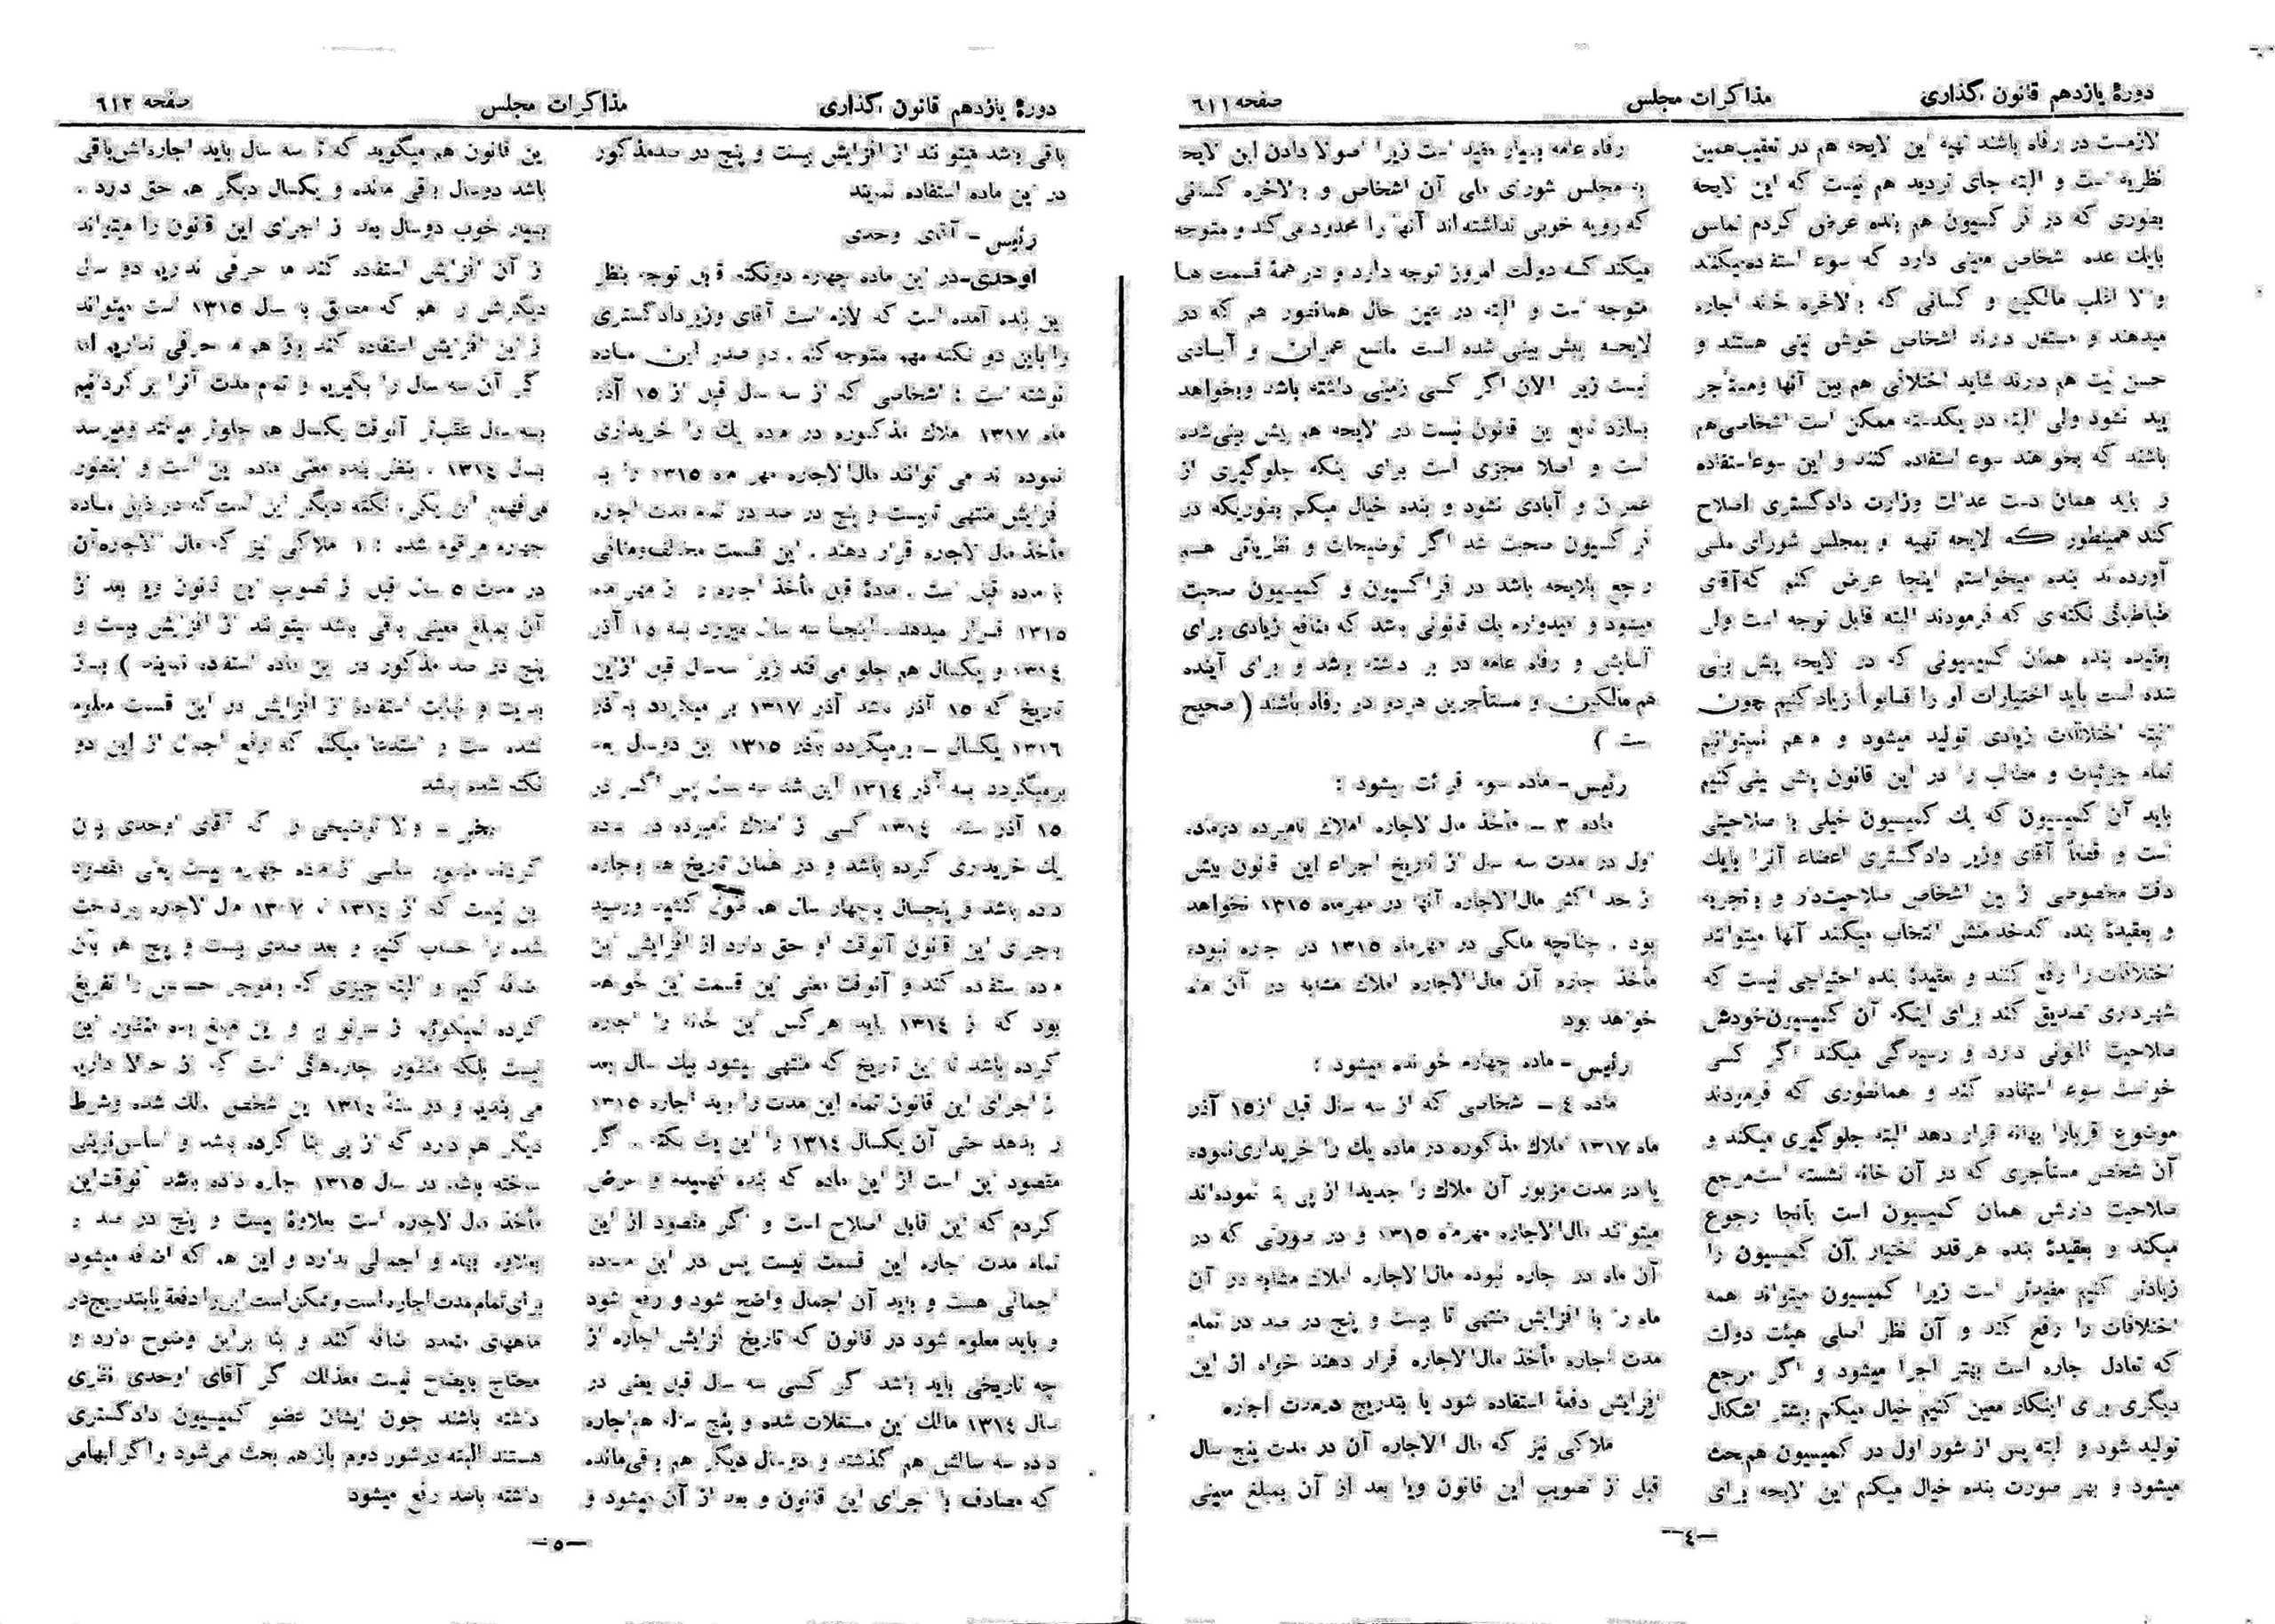 دورهٔ یازدهم قانون گذاری
مذاکرات مجلس
صفحه ۶۱۱
لازمست در رفاه باشند تهیه این لایحه هم در تعقیب همین
نظریه است و البته جای تردید هم نیست که این لایحه
بطوری که در فراکسیون هم بنده عرض کردم تماس
بایك عده اشخاص معینی دارد که سوء استفاده میکنند
والا اغلب مالکین و کسانی که بالاخره خانه اجاره
میدهند و مستغل دارند اشخاص خوش نیتی هستند و
حسن نیت هم دارند شاید اختلافی هم بین آنها و مستأجر
پیدا نشود ولی البته در یکدسته ممکن است اشخاصی هم
باشند که بخواهند سوء استفاده کنند و این سوء استفاده
را باید همان دست عدالت وزارت دادگستری اصلاح
کند همینطور که لایحه تهیه و بمجلس شورای ملی
آورده‌اند بنده میخواستم اینجا عرض کنم که آقای
طباطبائی نکته‌ای که فرمودند البته قابل توجه است ولی
بعقیده بنده همان کمیسیونی که در لایحه پیش بینی
شده است باید اختیارات او را قانوناً زیاد کنیم چون
البته اختلافات زیادی تولید میشود و ما هم نمیتوانیم
تمام جزئیات و مطالب را در این قانون پیش بینی کنیم
باید آن کمیسیون که یك کمیسیون خیلی با صلاحیتی
است و قطعاً آقای وزیر دادگستری اعضاء آنرا بایك
دقت مخصوصی از بین اشخاص صلاحیت‌دار و با تجربه
و بعقیدهٔ بنده کدخدامنش انتخاب میکنند آنها میتوانند
اختلافات را رفع کنند و بعقیدهٔ بنده احتیاجی نیست که
شهرداری تصدیق کند برای اینکه آن کمیسیون خودش
صلاحیت قانونی دارد و رسیدگی میکند اگر کسی
خواست سوء استفاده کند و همانطوری که فرمودند
موضوع را بهانه قرار دهد البته جلوگیری میکند و
آن شخص مستأجری که در آن خانه نشسته است مرجع
صلاحیت دارش همان کمیسیون است بآنجا رجوع
میکند و بعقیدهٔ بنده هر قدر اختیار آن کمیسیون را
زیادتر کنیم مفیدتر است زیرا کمیسیون میتواند همه
اختلافات را رفع کند و آن نظر اصلی هیئت دولت
که تعادل اجاره است بهتر اجرا میشود و اگر مرجع
دیگری برای اینکار معین کنیم خیال میکنم بیشتر اشکال
تولید شود و البته پس از شور اول در کمیسیون هم بحث
میشود و بهر صورت بنده خیال میکنم این لایحه برای
رفاه عامه بسیار مفید است زیرا اصولا دادن این لایحه
به مجلس شورای ملی آن اشخاص و بالاخره کسانی
که رویه خوبی نداشته‌اند آنها را محدود می‌کند و متوجه
میکند که دولت امروز توجه دارد و در همهٔ قسمت ها
متوجه است و البته در عین حال همانطور هم که در
لایحه پیش بینی شده است مانع عمران و آبادی
نیست زیرا الان اگر کسی زمینی داشته باشد و بخواهد
بسازد تابع این قانون نیست در لایحه هم پیش بینی شده
است و اصلا مجزی است برای اینکه جلوگیری از
عمران و آبادی نشود و بنده خیال میکنم بطوریکه در
فراکسیون صحبت شد اگر توضیحات و نظریاتی هم
راجع بلایحه باشد در فراکسیون و کمیسیون صحبت
میشود و امیدوارم یك قانونی باشد که منافع زیادی برای
آسایش و رفاه عامه در بر داشته باشد و برای آینده
هم مالکین و مستأجرین هر دو در رفاه باشند ( صحیح
است )
رئیس – ماده سوم قرائت میشود :
ماده ۳ – مأخذ مال الاجاره املاك نامبرده در ماده
اول در مدت سه سال از تاریخ اجراء این قانون بیش
از حد اکثر مال الاجاره آنها در مهرماه ۱۳۱۵ نخواهد
بود . چنانچه ملکی در مهرماه ۱۳۱۵ در اجاره نبوده
مأخذ اجاره آن مال الاجاره املاك مشابه در آن ماه
خواهد بود
رئیس – ماده چهارم خوانده میشود :
ماده ٤ – اشخاصی که از سه سال قبل از ۱۵ آذر
ماه ۱۳۱۷ املاك مذکوره در ماده یك را خریداری نموده
یا در مدت مزبور آن املاك را جدیدا از پی بنا نموده‌اند
میتوانند مال الاجاره مهرماه ۱۳۱۵ و در صورتی که در
آن ماه در اجاره نبوده مال الاجاره املاك مشابه در آن
ماه را با افزایش منتهی تا بیست و پنج در صد در تمام
مدت اجاره مأخذ مال الاجاره قرار دهند خواه از این
افزایش دفعهٔ استفاده شود یا بتدریج در مدت اجاره
املاکی نیز که مال الاجاره آن در مدت پنج سال
قبل از تصویب این قانون و یا بعد از آن بمبلغ معینی
—٤—
دورهٔ یازدهم قانون گذاری
مذاکرات مجلس
صفحه ۶۱۲
باقی باشد میتوانند از افزایش بیست و پنج در صد مذکور
در این ماده استفاده نمایند
رئیس – آقای اوحدی
اوحدی – در این ماده چهارم دو نکته قابل توجه بنظر
این بنده آمده است که لازم است آقای وزیر دادگستری
را باین دو نکته مهم متوجه کنم . در صدر این ماده
نوشته است : اشخاصی که از سه سال قبل از ۱۵ آذر
ماه ۱۳۱۷ املاك مذکوره در ماده یك را خریداری
نموده‌اند می توانند مال الاجاره مهر ماه ۱۳۱۵ را با
افزایش منتهی تا بیست و پنج در صد در تمام مدت اجاره
مأخذ مال الاجاره قرار دهند . این قسمت مخالف و منافی
با ماده قبل است . مادهٔ قبل مأخذ اجاره را از مهر ماه
۱۳۱۵ قرار میدهد . اینجا سه سال میرود به ۱۵ آذر
۱۳۱٤ و یکسال هم جلو می افتد زیرا سه سال قبل از این
تاریخ که ۱۵ آذر باشد آذر ۱۳۱۷ بر میگردد به آذر
۱۳۱۶ یکسال – برمیگردد بآذر ۱۳۱۵ این دو سال بعد
برمیگردد به آذر ۱۳۱٤ این شد سه سال پس اگر در
۱۵ آذر سنه ۱۳۱٤ کسی از املاك نامبرده در ماده
یك خریداری کرده باشد و در همان تاریخ هم باجاره
داده باشد و پنجسال یا چهار سال هم طول کشید و رسید
باجرای این قانون آنوقت او حق دارد از افزایش این
ماده استفاده کند و آنوقت معنی این قسمت این خواهد
بود که از ۱۳۱٤ باید هر کس این خانه را اجاره
کرده باشد تا این تاریخ که منتهی میشود بیك سال بعد
از اجرای این قانون تمام این مدت را باید اجاره ۱۳۱۵
را بدهد حتی آن یکسال ۱۳۱٤ را این یك نکته . اگر
مقصود این است از این ماده که بنده فهمیدم و عرض
کردم که این قابل اصلاح است و اگر مقصود از این
تمام مدت اجاره این قسمت نیست پس در این ماده
اجمالی هست و باید آن اجمال واضح شود و رفع شود
و باید معلوم شود در قانون که تاریخ افزایش اجاره از
چه تاریخی باید باشد اگر کسی سه سال قبل یعنی در
سال ۱۳۱٤ مالك این مستغلات شده و پنج ساله هم اجاره
داده سه سالش هم گذشته و دو سال دیگر هم باقی‌مانده
که مصادف با اجرای این قانون و بعد از آن میشود و
این قانون هم میگوید که تا سه سال باید اجاره‌اش باقی
باشد دو سال باقی مانده و یکسال دیگر هم حق دارد .
بسیار خوب دو سال بعد از اجرای این قانون را میتواند
از آن افزایش استفاده کند ما حرفی نداریم دو سال
دیگرش را هم که مطابق با سال ۱۳۱۵ است میتواند
از این افزایش استفاده کند باز هم ما حرفی نداریم اما
اگر آن سه سال را بگیریم و تمام مدت آنرا بر گردانیم
بسه سال عقب‌تر آنوقت یکسال هم جلوتر میافتد و میرسد
بسال ۱۳۱٤ . بنظر بنده معنی ماده این است و اینطور
می فهمم این یکی ، نکته دیگر این است که در ذیل ماده
چهارم مرقوم شده : ( املاکی نیز که مال الاجاره آن
در مدت ۵ سال قبل از تصویب این قانون و یا بعد از
آن بمبلغ معینی باقی باشد میتوانند از افزایش بیست و
پنج در صد مذکور در این ماده استفاده نمایند ) باز
بدایت و نهایت استفاده از افزایش در این قسمت معلوم
نشده است و استدعا میکنم که رفع اجمال از این دو
نکته شده باشد
مخبر – اولا توضیحی را که آقای اوحدی بیان
کردند منظور اساسی از ماده چهارم نیست یعنی مقصود
این نیست که از ۱۳۱٤ تا ۱۳۱۷ مال الاجاره پرداخت
شده را حساب کنیم و بعد صدی بیست و پنج هم بآن
اضافه کنیم و البته چیزی که بموجر حسابش را تفریغ
کرده نمیگوئیم از سر نو بیا و این مبلغ بده منظور این
نیست بلکه منظور اجاره‌هائی است که از حالا داریم
می بندیم و در سنهٔ ۱۳۱٤ این شخص مالك شده و شرط
دیگر هم دارد که از پی بنا کرده باشد و اساس نوینی
ساخته باشد در سال ۱۳۱۵ اجاره داده باشد آنوقت این
مأخذ مال الاجاره است بعلاوهٔ بیست و پنج در صد و
بعلاوه ابهام و اجمالی ندارد و این هم که اضافه میشود
برای تمام مدت اجاره است و ممکن است این را دفعهٔ یا بتدریج در
ماههای متعدد اضافه کنند و بنا براین وضوح دارد و
محتاج بایضاح نیست معذلك اگر آقای اوحدی نظری
داشته باشند چون ایشان عضو کمیسیون دادگستری
هستند البته در شور دوم باز هم بحث می‌شود و اگر ابهامی
داشته باشد رفع میشود
—۵—